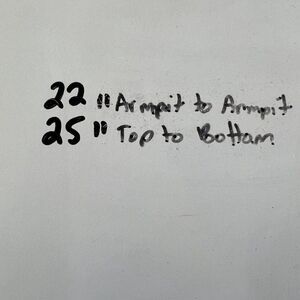 22" Armpit to Armpit
25" Top to Bottam